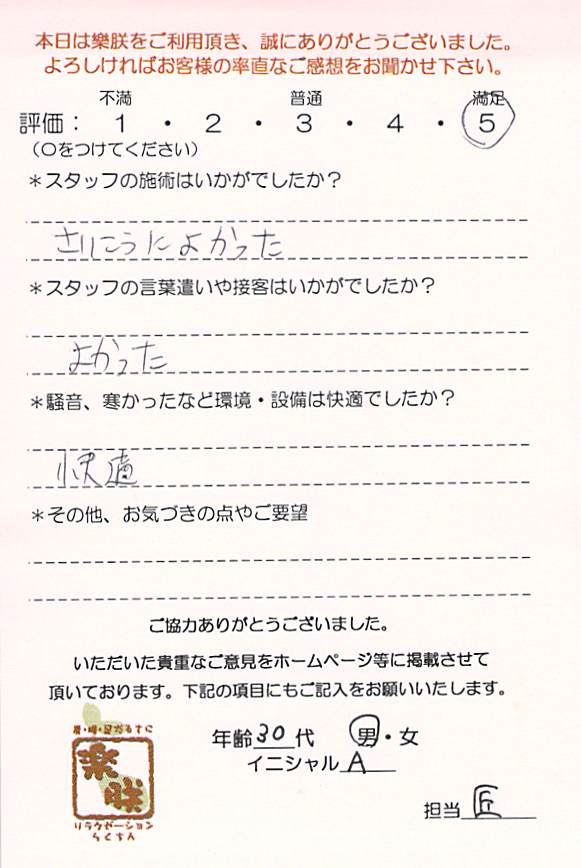 本日は樂朕をご利用頂き、誠にありがとうございました。
よろしければお客様の率直なご感想をお聞かせ下さい。
不満 普通 満足
評価： 1 ・ 2 ・ 3 ・ 4 ・ 5
（〇をつけてください）
＊スタッフの施術はいかがでしたか？
さいこうによかった
＊スタッフの言葉遣いや接客はいかがでしたか？
よかった
＊騒音、寒かったなど環境・設備は快適でしたか？
快適
＊その他、お気づきの点やご要望
ご協力ありがとうございました。
いただいた貴重なご意見をホームページ等に掲載させて
頂いております。下記の項目にもご記入をお願いいたします。
年齢30代 男・女
イニシャル A
担当 匠
楽朕
リラクゼーション
らくちん